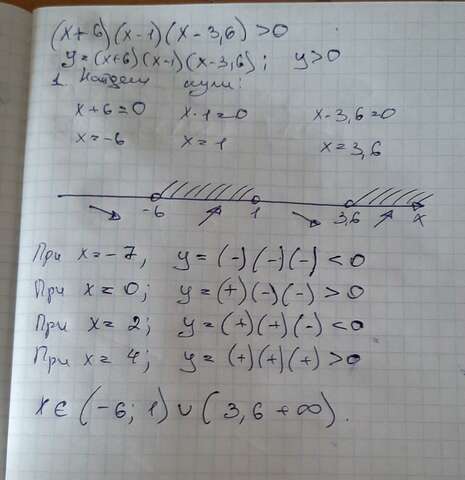 (x+6)(x-1)(x-3,6)>0
y=(x+6)(x-1)(x-3,6); y>0
1. Найдем нули:
x+6=0 x-1=0 x-3,6=0
x=-6 x=1 x=3,6
-6 1 3,6 x
При x=-7, y=(-)(-)(-)<0
При x=0; y=(+)(-)(-)>0
При x=2; y=(+)(+)(-)<0
При x=4; y=(+)(+)(+)>0
x∈(-6; 1)∪(3,6 +∞).